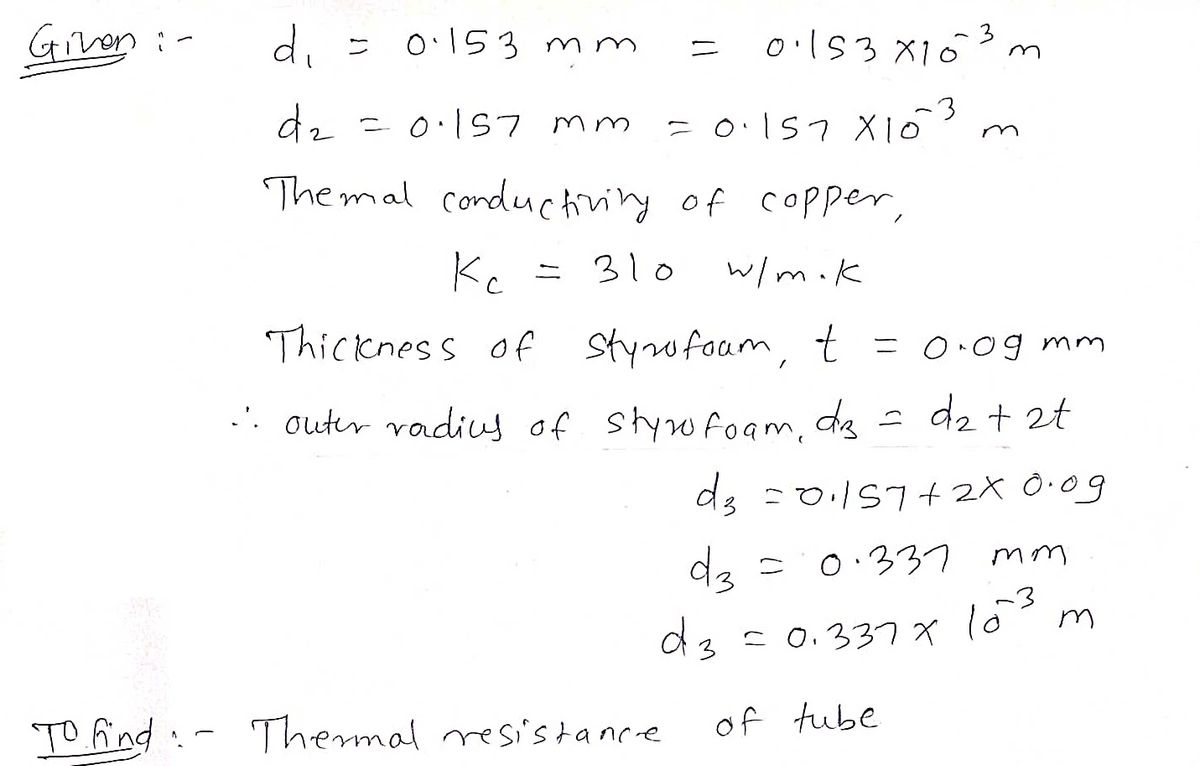 Given :- d₁ = 0.153 mm = 0.153 ×10⁻³ m
d₂ = 0.157 mm = 0.157 ×10⁻³ m
Themal conductivity of copper,
Kc = 310 w/m.k
Thickness of styrofoam, t = 0.09 mm
∴ outer radius of styrofoam, d₃ = d₂ + 2t
d₃ = 0.157 + 2× 0.09
d₃ = 0.337 mm
d₃ = 0.337 × 10⁻³ m
To find :- Thermal resistance of tube